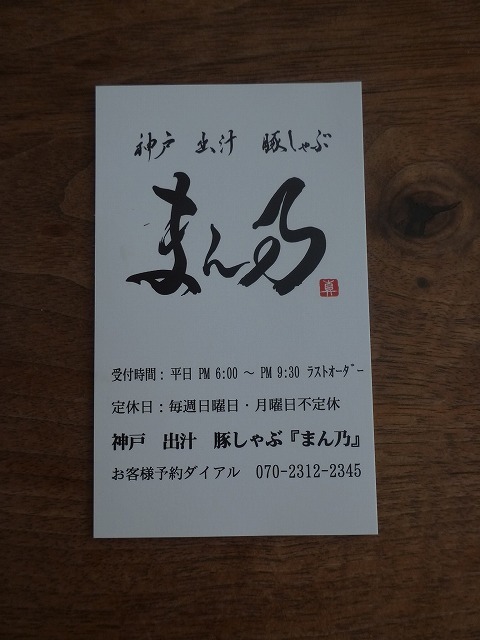 神戸 出汁 豚しゃぶ
まん乃
真
受付時間：平日 PM 6:00 ～ PM 9:30 ラストオーダー
定休日：毎週日曜日・月曜日不定休
神戸 出汁 豚しゃぶ『まん乃』
お客様予約ダイアル 070-2312-2345